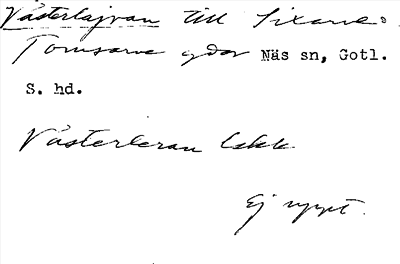 Västerlajvan till Sixarve
Tomsarve ydor Näs sn, Gotl.
S. hd.
Västerleran
Ej uppt.